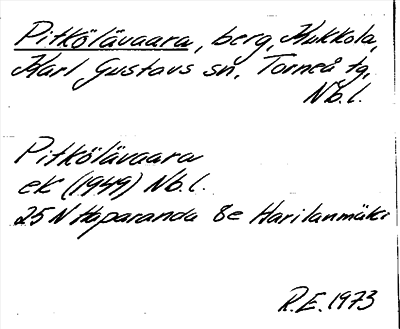 Pitkölävaara, berg, Kukkola,
Karl Gustavs sn, Torneå tg,
Nb.l.
Pitkölävaara
ek (1949) Nb.l.
25 N Haparanda 8e Harilanmäki
R.E. 1973